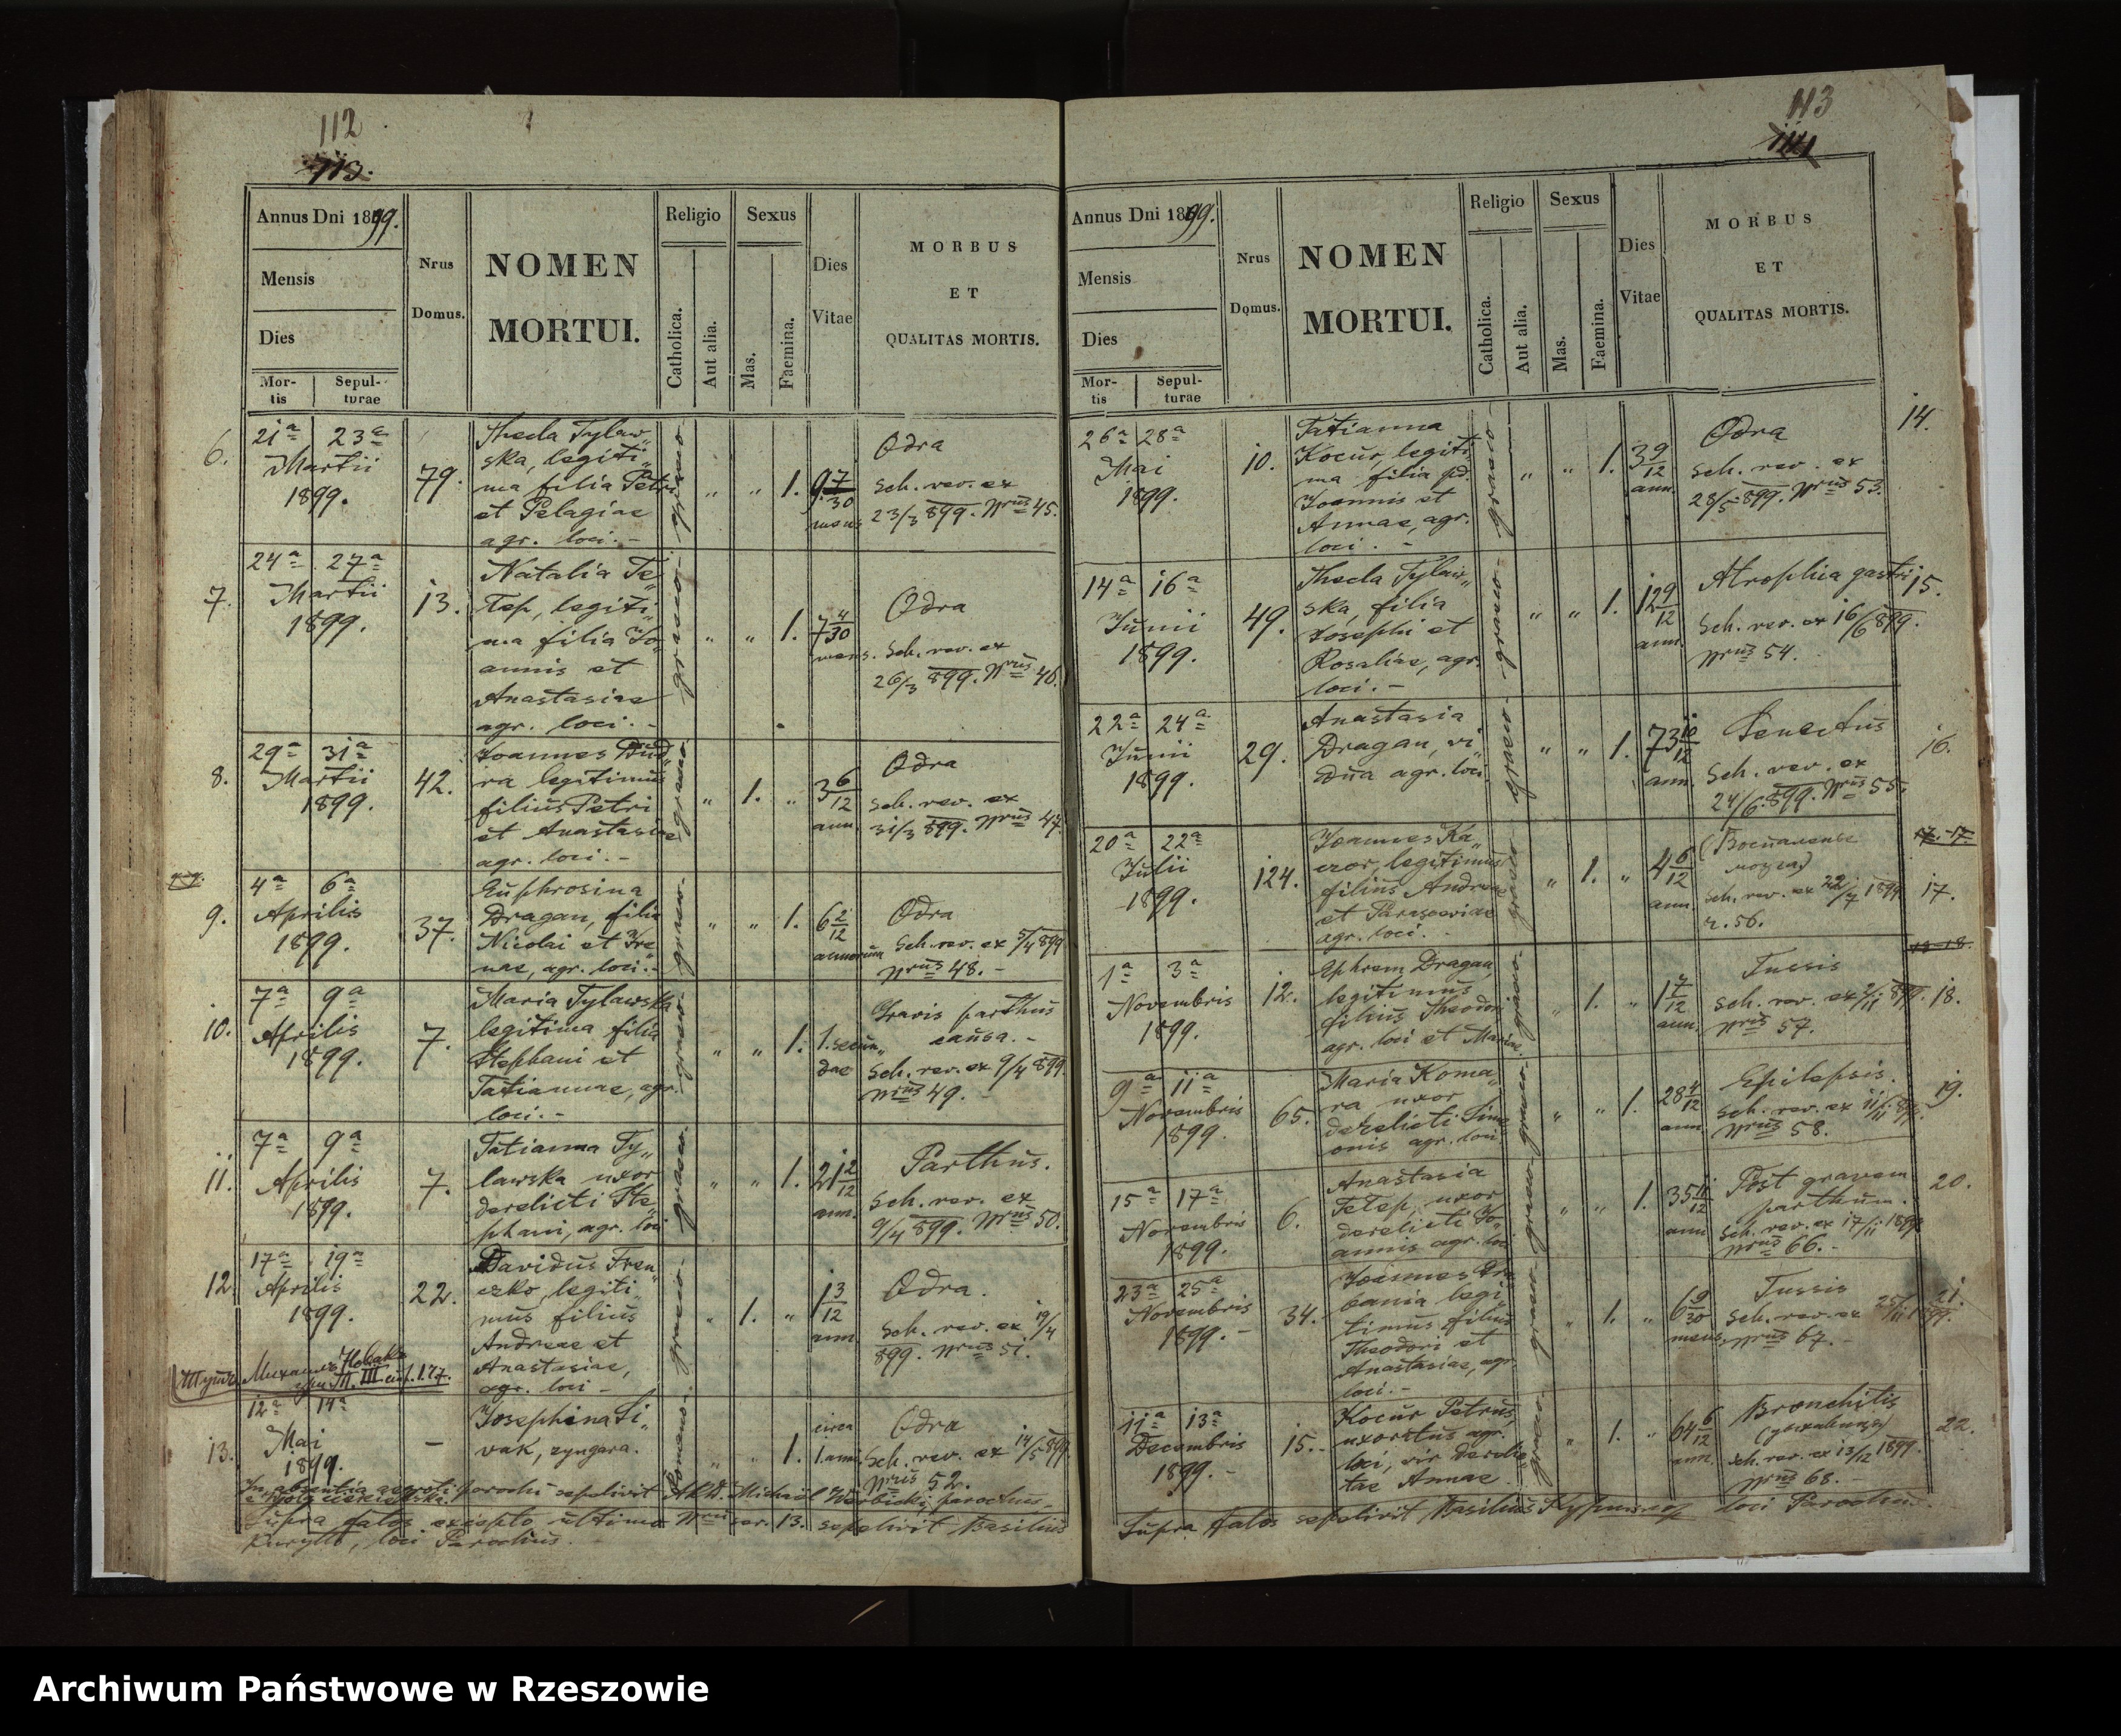 112
113.
Annus Dni 1899.
Mensis
Dies
Mor-
tis
Sepul-
turae
Nrus
Domus.
NOMEN
MORTUI.
Religio
Catholica.
Aut alia.
Sexus
Mas.
Faemina.
Dies
Vitae
MORBUS
ET
QUALITAS MORTIS.
6.
21a 23a
Martii
1899.
79.
Thecla Tylaw„
ska, legiti„
ma filia Petri
et Pelagiae
agr. loci.-
graeco
„ „ 1.
9 7/30
mens
Odra
Sch. rev. ex
23/3 899. Nrus 45.
7.
24a 27a
Martii
1899.
13.
Natalia Te„
tep, legiti„
ma filia Jo„
annis et
Anastasiae
agr. loci.-
graeco
„ „ 1.
7 4/30
mens.
Odra
Sch. rev. ex
26/3 899. Nrus 46.
8.
29a 31a
Martii
1899.
42.
Joannes Dud„
ra legitimus
filius Petri
et Anastasiae
agr. loci.-
graeco
„ 1. „
3 6/12
ann.
Odra
Sch. rev. ex
31/3 899. Nrus 47.
9.
4a 6a
Aprilis
1899.
37.
Euphrosina
Dragan, filia
Nicolai et Ire„
nae, agr. loci.-
graeco
„ „ 1.
6 2/12
annorum
Odra
Sch. rev. ex 5/4 899
Nrus 48.-
10.
7a 9a
Aprilis
1899.
7.
Maria Tylawska
legitima filia
Stephani et
Tatiannae, agr.
loci.-
graeco
„ „ 1.
1. secun„
dae
Gravis parthus
causa.-
Sch. rev. ex 9/4 899.
Nrus 49.-
11.
7a 9a
Aprilis
1899.
7.
Tatianna Ty„
lawska uxor
derelicti Ste„
phani, agr. loci
graeco
„ „ 1.
21 2/12
ann.
Parthus.
Sch. rev. ex
9/4 899. Nrus 50.
12.
17a 19a
Aprilis
1899.
22.
Davidus Fren„
czko, legiti„
mus filius
Andreae et
Anastasiae,
agr. loci -
graeco
„ 1. „
1 3/12
ann.
Odra.
Sch. rev. ex 19/4
899. Nrus 51.
13.
12a 14a
Mai
1899.
-
Josephina Si„
vak, zyngara.
Romano
„ „ 1.
circa
1. anni
Odra
Sch. rev. ex 14/5 899.
Nrus 52.
In absentia aegroti parochi sepelivit Michaël Werbicki, parochus
Supra datos excepto ultimo Nrus ser. 13. sepelivit Basilius
Kuryłło, loci Parochus.
113
114
Annus Dni 1899.
Mensis
Dies
Mor-
tis
Sepul-
turae
Nrus
Domus.
NOMEN
MORTUI.
Religio
Catholica.
Aut alia.
Sexus
Mas.
Faemina.
Dies
Vitae
MORBUS
ET
QUALITAS MORTIS.
26a 28a
Mai
1899.
10.
Tatianna
Kocur, legiti„
ma filia pd.
Joannis et
Annae, agr.
loci.-
graeco
„ „ 1.
3 9/12
ann.
Odra
Sch. rev. ex
28/5 899. Nrus 53.
14.
14a 16a
Junii
1899.
49.
Thecla Tylaw„
ska, filia
Josephi et
Rosaliae, agr.
loci.-
graeco
„ „ 1.
12 9/12
ann.
Atrophia gastri
Sch. rev. ex 16/6 899.
Nrus 54.
15.
22a 24a
Junii
1899.
29.
Anastasia
Dragan, vi„
dua agr. loci
graeco
„ „ 1.
73 10/12
ann.
Senectus
Sch. rev. ex
24/6 899. Nrus 55.
16.
20a 22a
Julii
1899.
124.
Joannes Ka„
czor, legitimus
filius Andreae
et Parasceviae
agr. loci.-
graeco
„ 1. „
4 6/12
ann.
Sch. rev. ex 22/7 1899
r. 56.
17.-17.
17.
1a 3a
Novembris
1899.
12.
Ephrem Dragan,
legitimus
filius Theodori
agr. loci et Mariae.
graeco
„ 1. „
1 7/12
ann.
Tussis
Sch. rev. ex 2/11 899.
Nrus 57.
18-18.
18.
9a 11a
Novembris
1899.
65.
Maria Koma„
ra uxor
derelicti Sime„
onis agr. loci.
graeco
„ „ 1.
28 4/12
ann.
Epilepsis.
Sch. rev. ex 11/11 899.
Nrus 58.
19.
15a 17a
Novembris
1899.
6.
Anastasia
Tetep, uxor
derelicti Jo„
annis agr. loci
graeco
„ „ 1.
35 11/12
ann
Post gravem
parthum.
Sch. rev. ex 17/11 1899
Nrus 66.-
20.
23a 25a
Novembris
1899.-
34.
Joannes
bania legi„
timus filius
Theodori et
Anastasiae, agr.
loci.-
graeco
„ 1. „
6 9/30
mens.
Tussis
Sch. rev. ex 25/11 1899.
Nrus 67.-
21.
11a 13a
Decembris
1899.-
15.
Kocur Petrus,
uxoratus agr.
loci, vir derelic„
tae Annae.
graeco
„ 1. „
64 6/12
ann.
Bronchitis
Sch. rev. ex 13/12 1899.
Nrus 68.-
22.
Supra datos sepelivit Basilius loci Parochus.
Archiwum Państwowe w Rzeszowie